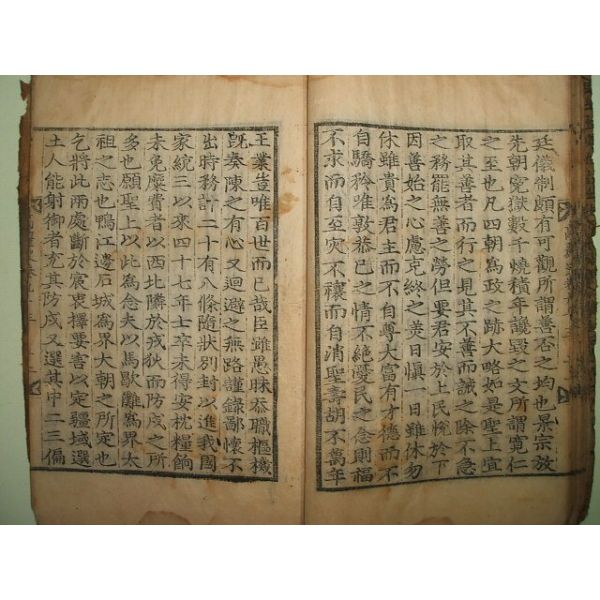 廷儀制頗有可觀所謂善否之均也景宗放
先朝寃獄數千燒積年讒毁之文所謂寬仁
之至也凡四朝爲政之跡大略如是聖上宜
取其善者而行之見其不善而誡之除不急
之務罷無善之勞但要君安於上民悅於下
因善始之心慮克終之羙日愼一日雖休勿
休雖貴爲君主而不自尊大富有才德而不
自驕矜唯敦恭已之情不絶憂民之念則福
不求而自至灾不禳而自消聖壽胡不萬年
王業豈唯百世而已哉臣雖愚昧忝職樞機
旣奏陳之有心又迴避之無路謹錄鄙懷不
出時務計二十有八條隨狀別封以進我國
家統三以來四十七年士卒未得安枕糧餉
未免糜費者以西北隣於戎狄而防戍之所
多也願聖上以此爲念夫以馬歇灘爲界太
祖之志也鴨江邊石城爲界大朝之所定也
乞將此兩處斷於宸衷擇要害以定疆域選
土人能射御者充其防戍又選其中二三偏